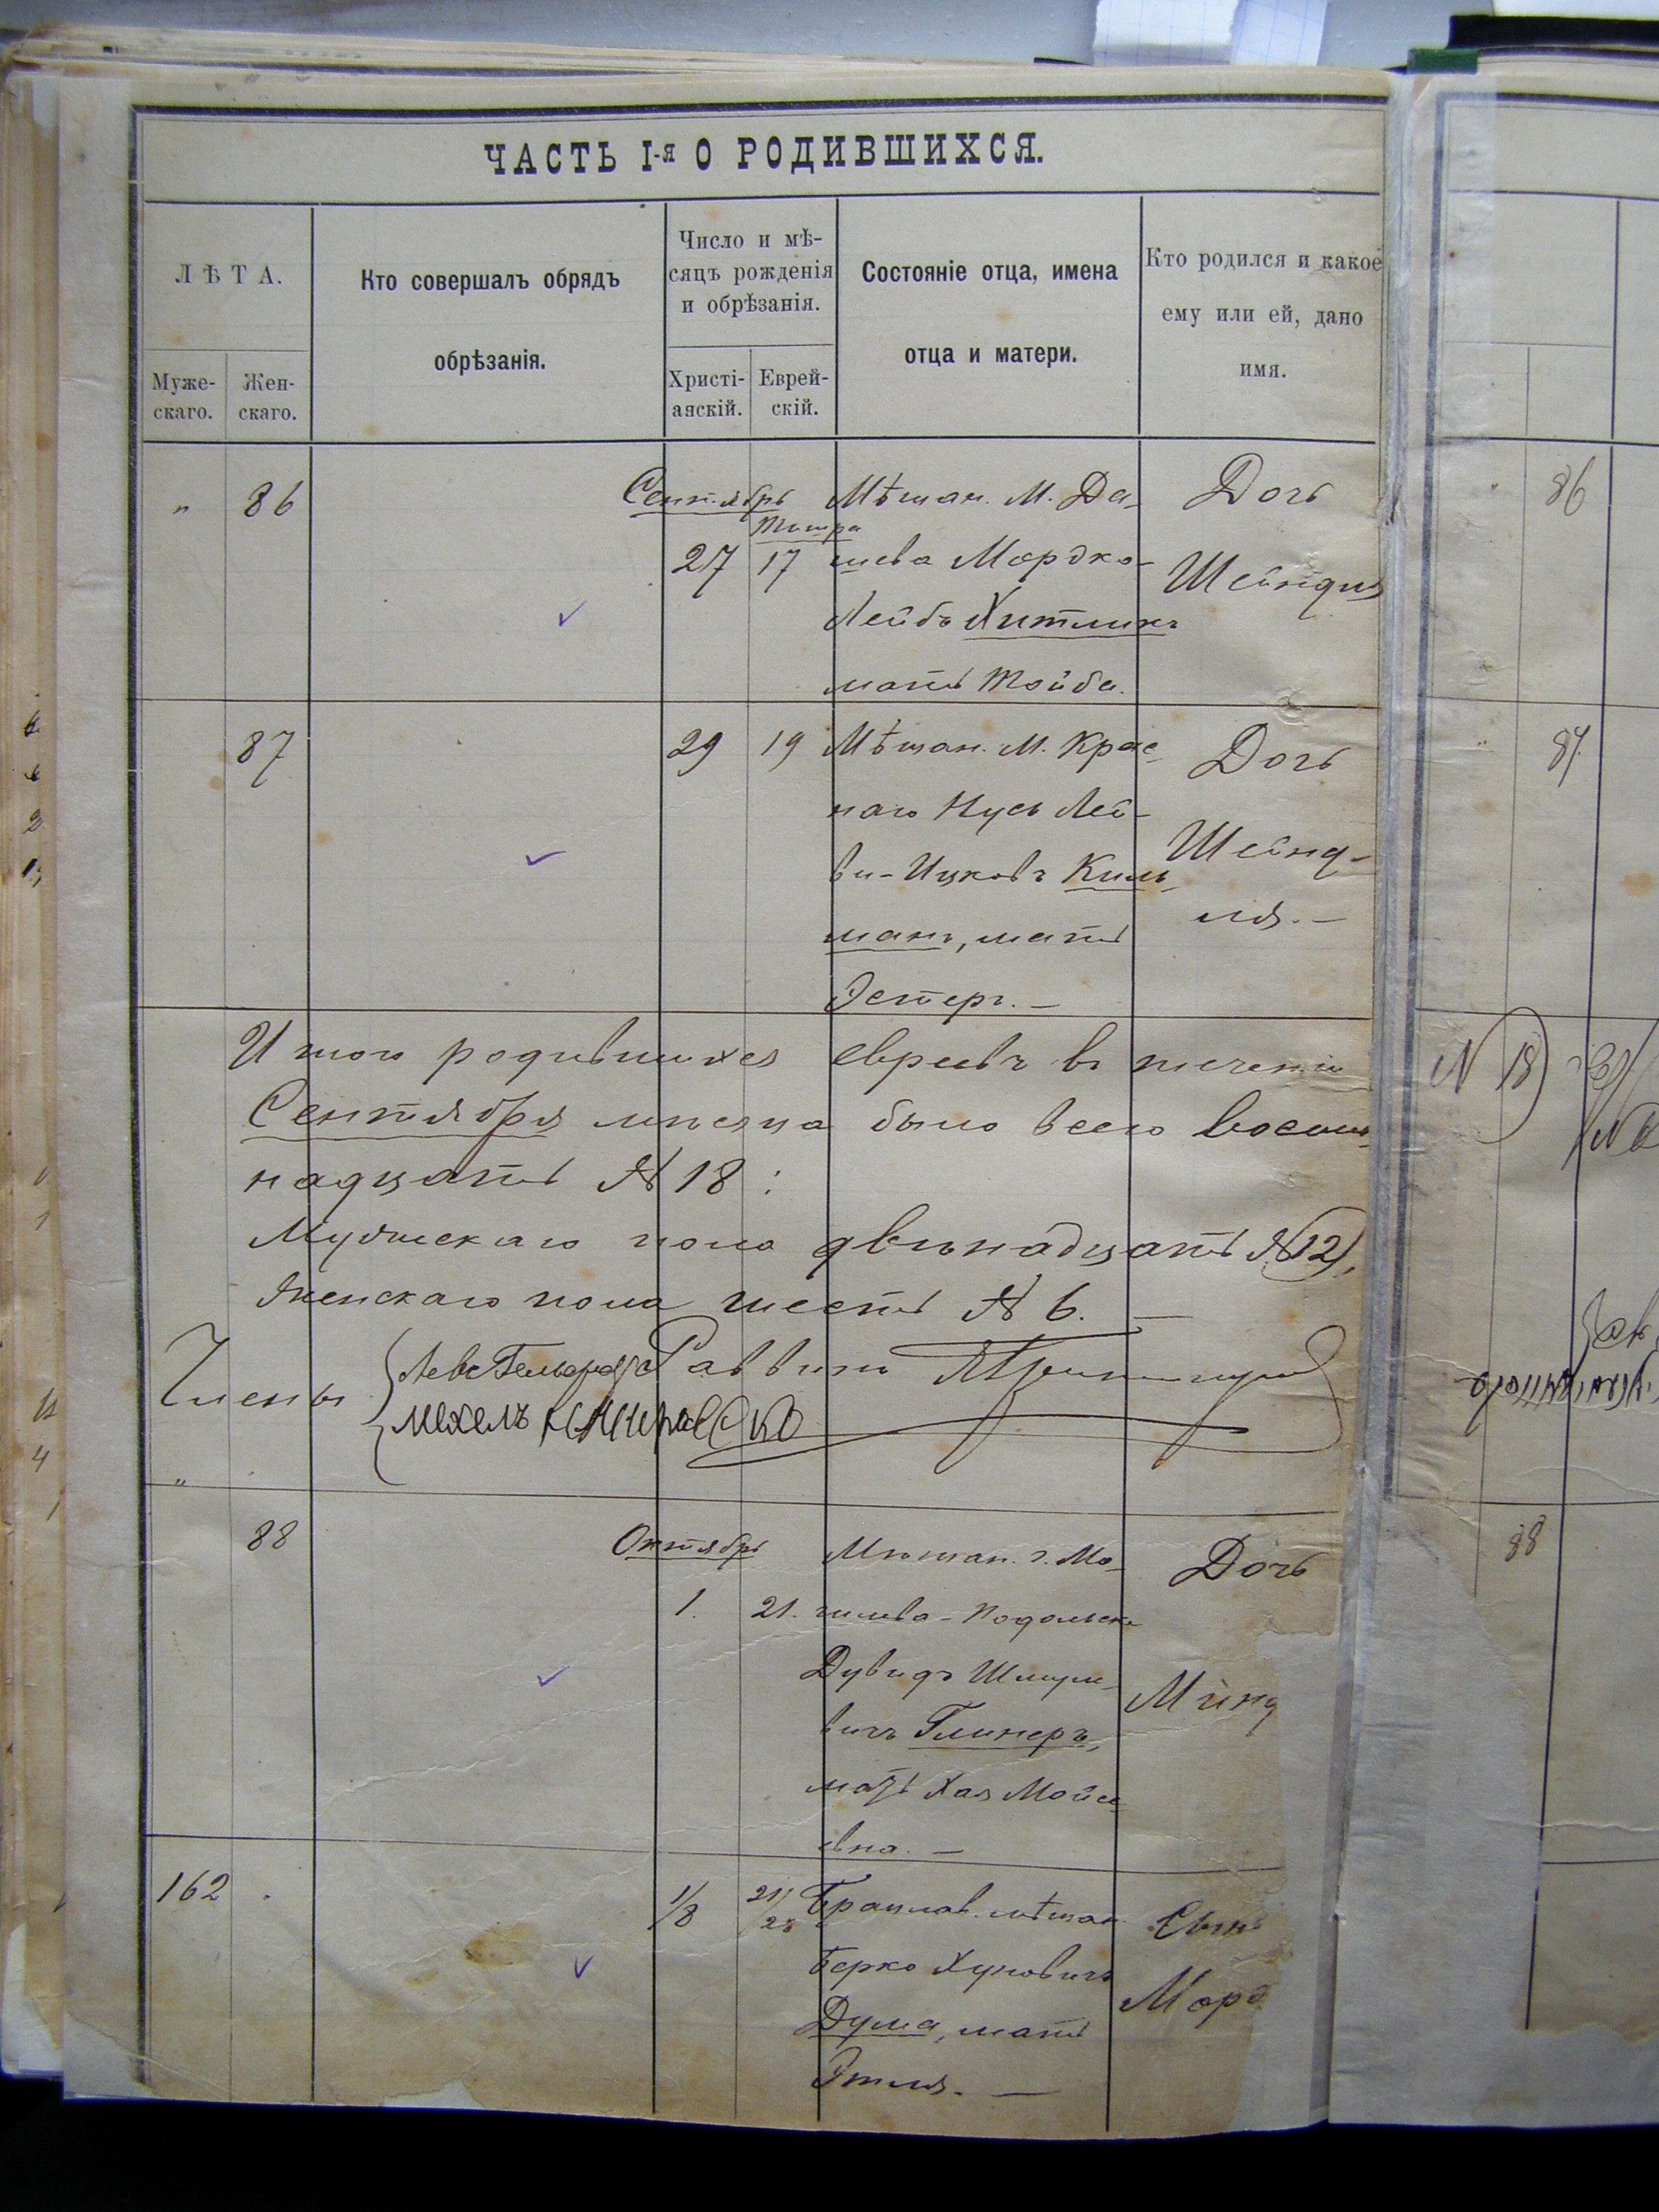 ЧАСТЬ I-я О РОДИВШИХСЯ.
ЛѢТА.
Муже-
скаго.
Жен-
скаго.
Кто совершалъ обрядъ
обрѣзанія.
Число и мѣ-
сяцъ рожденія
и обрѣзанія.
Христі-
анскій.
Еврей-
скій.
Состояніе отца, имена
отца и матери.
Кто родился и какое
ему или ей, дано
имя.
" 86
Сентябрь
Тишра
27 17
Мѣщан. М. Да-
шева Мордко-
Лейбъ Хитликъ
мать Тойба.
Дочь
Шейндля
87
29 19
Мѣщан. М. Крас-
наго Нусь Лей-
ви-Ицковъ Киль-
манъ, мать
Эстеръ. —
Дочь
Шейнд-
ля. —
Итого родившихся евреевъ въ теченіи
Сентября мѣсяца было всего восем-
надцать № 18:
Мужескаго пола двѣнадцать № 12),
Женскаго пола шесть № 6. —
Члены
Раввинъ
"
88
Октябрь
1. 21.
Мѣщан. г. Мо-
гилева-Подольска
Дувидъ Шмуле-
вичъ Глинеръ,
мать Хая Мойсе-
евна. —
Дочь
Минд
162 .
1/8 21/28
Брацлав. мѣщан.
Берко Хуновичъ
Дума, мать
Этля. —
Сынъ
Морд
86
87
N 18)
88